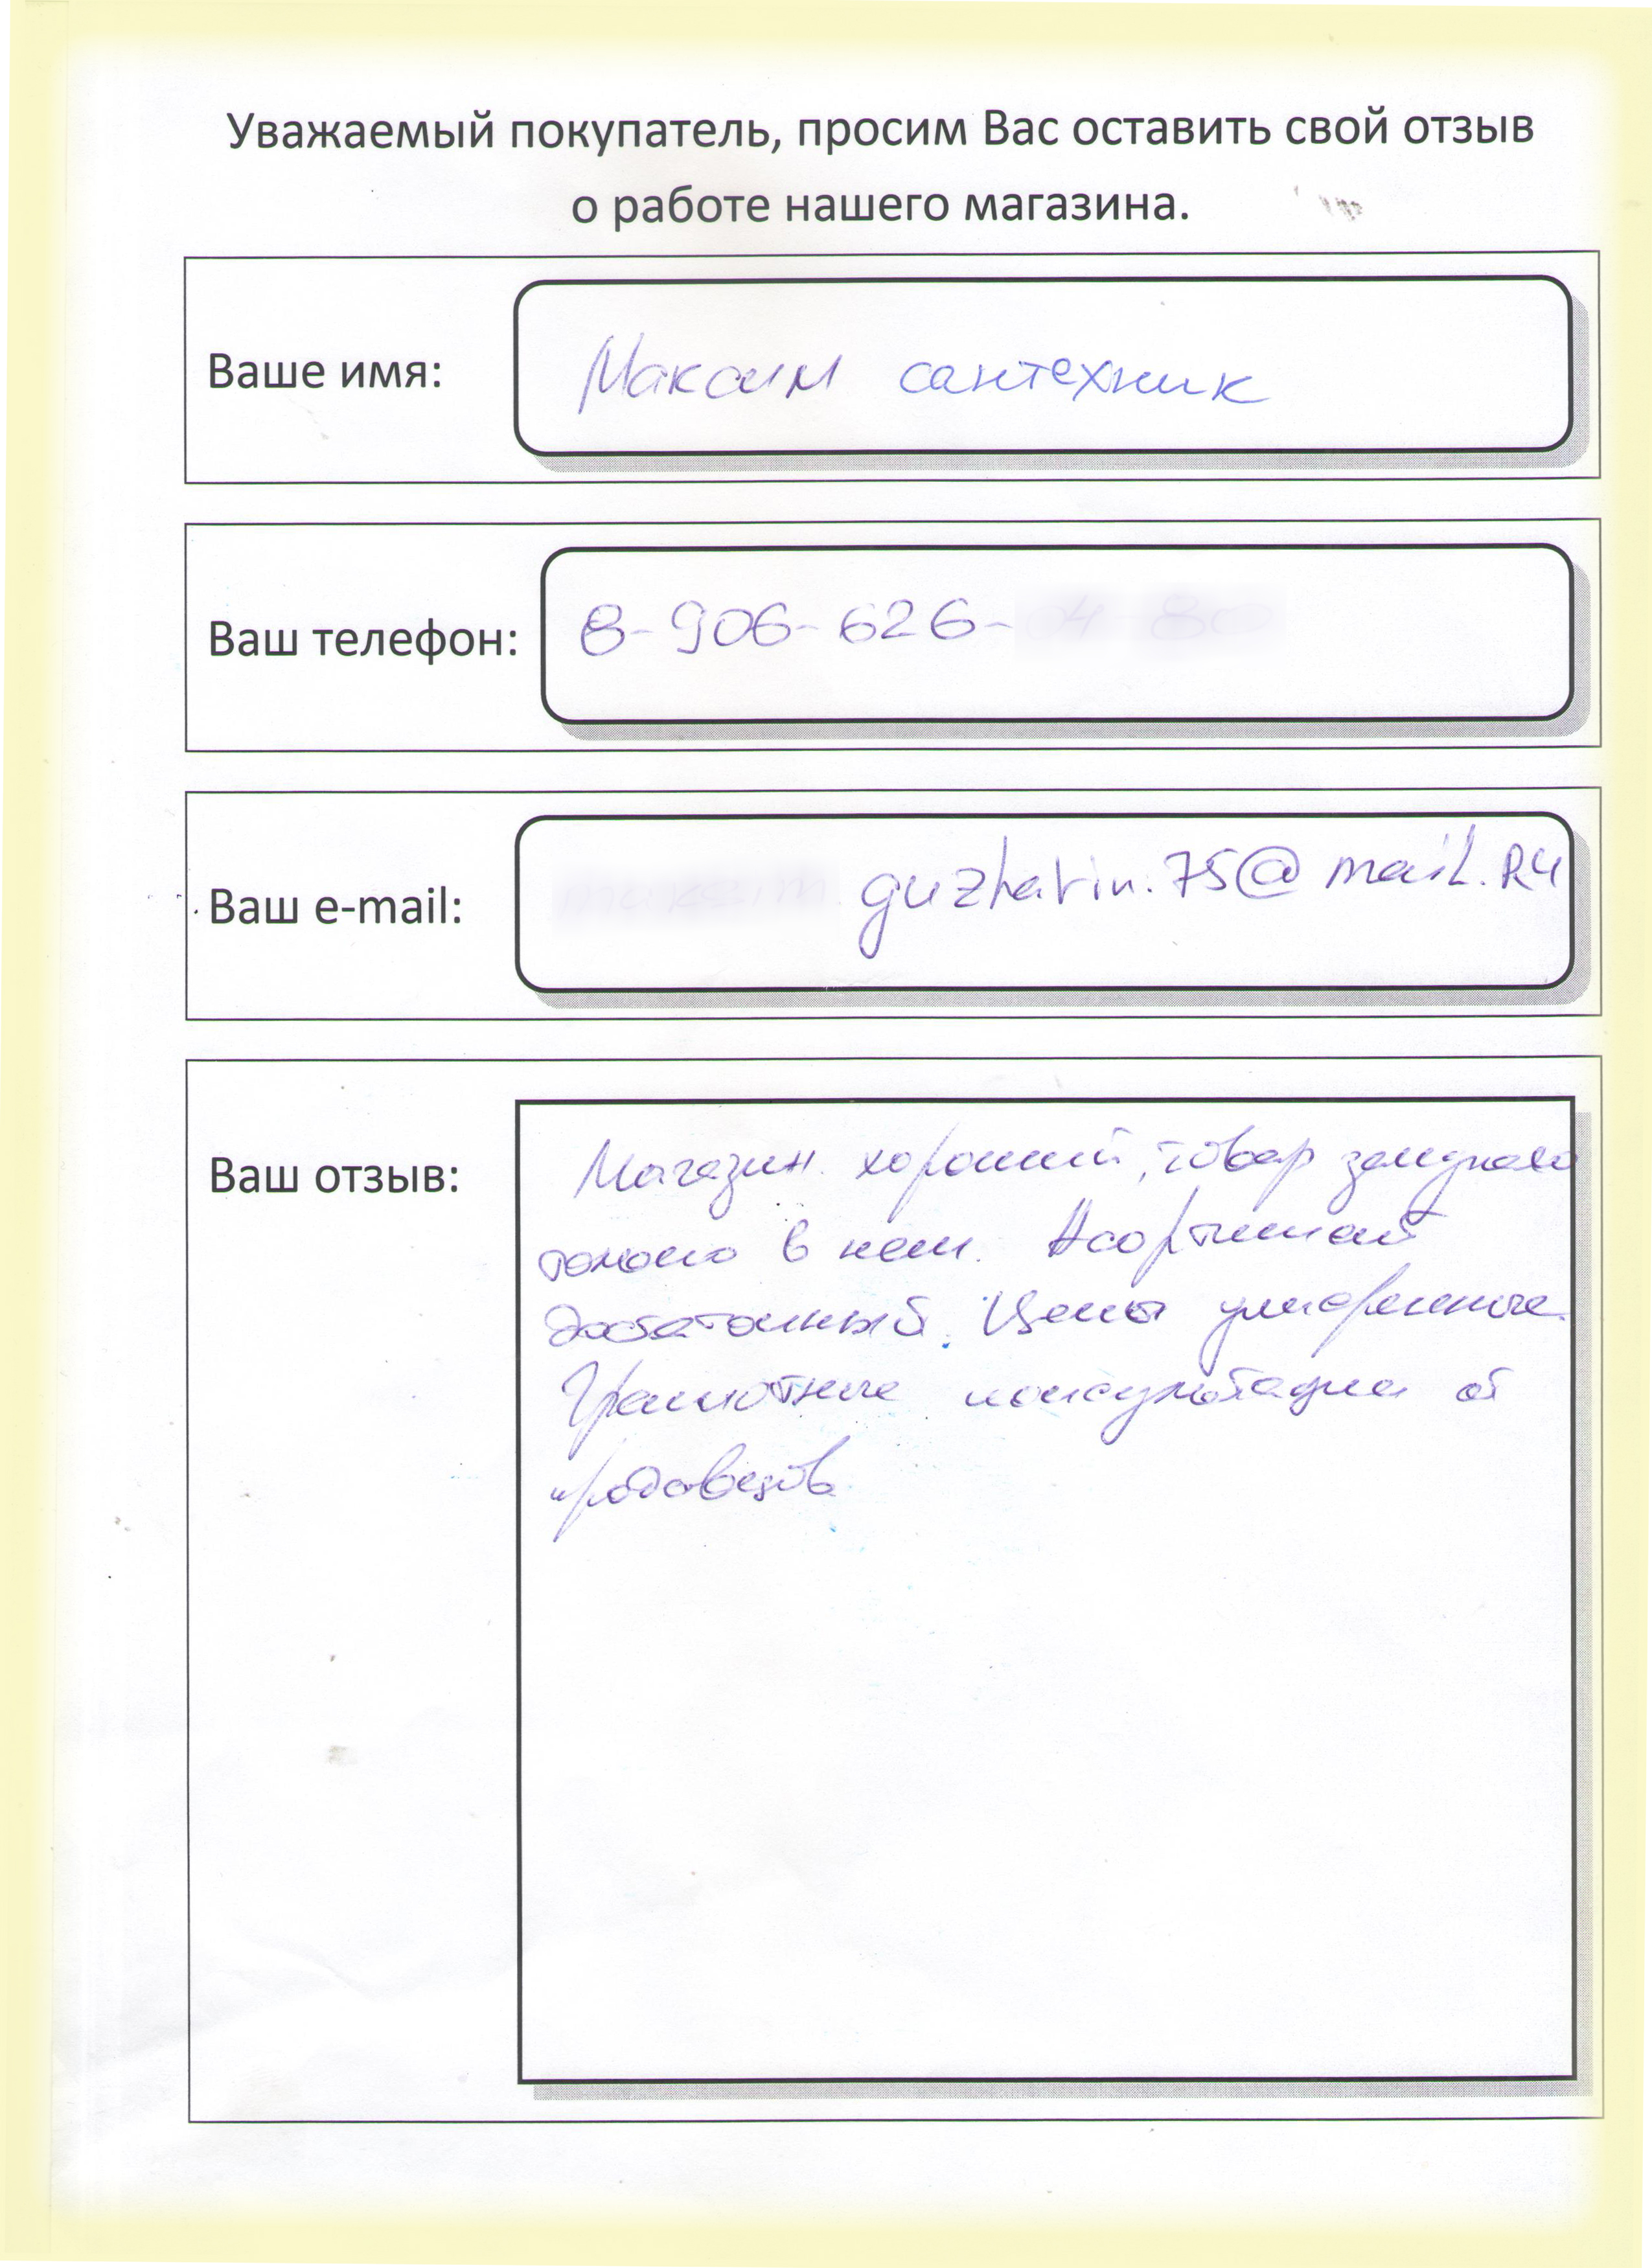 Уважаемый покупатель, просим Вас оставить свой отзыв
о работе нашего магазина.
Ваше имя:
Максим сантехник
Ваш телефон:
8-906-626-
Ваш e-mail:
guzhavin.75@mail.Ru
Ваш отзыв:
Магазин хороший, товар закупаю
только в нем. Асортимент
достаточный. Цены умеренные.
Грамотные консультации от
продавцов